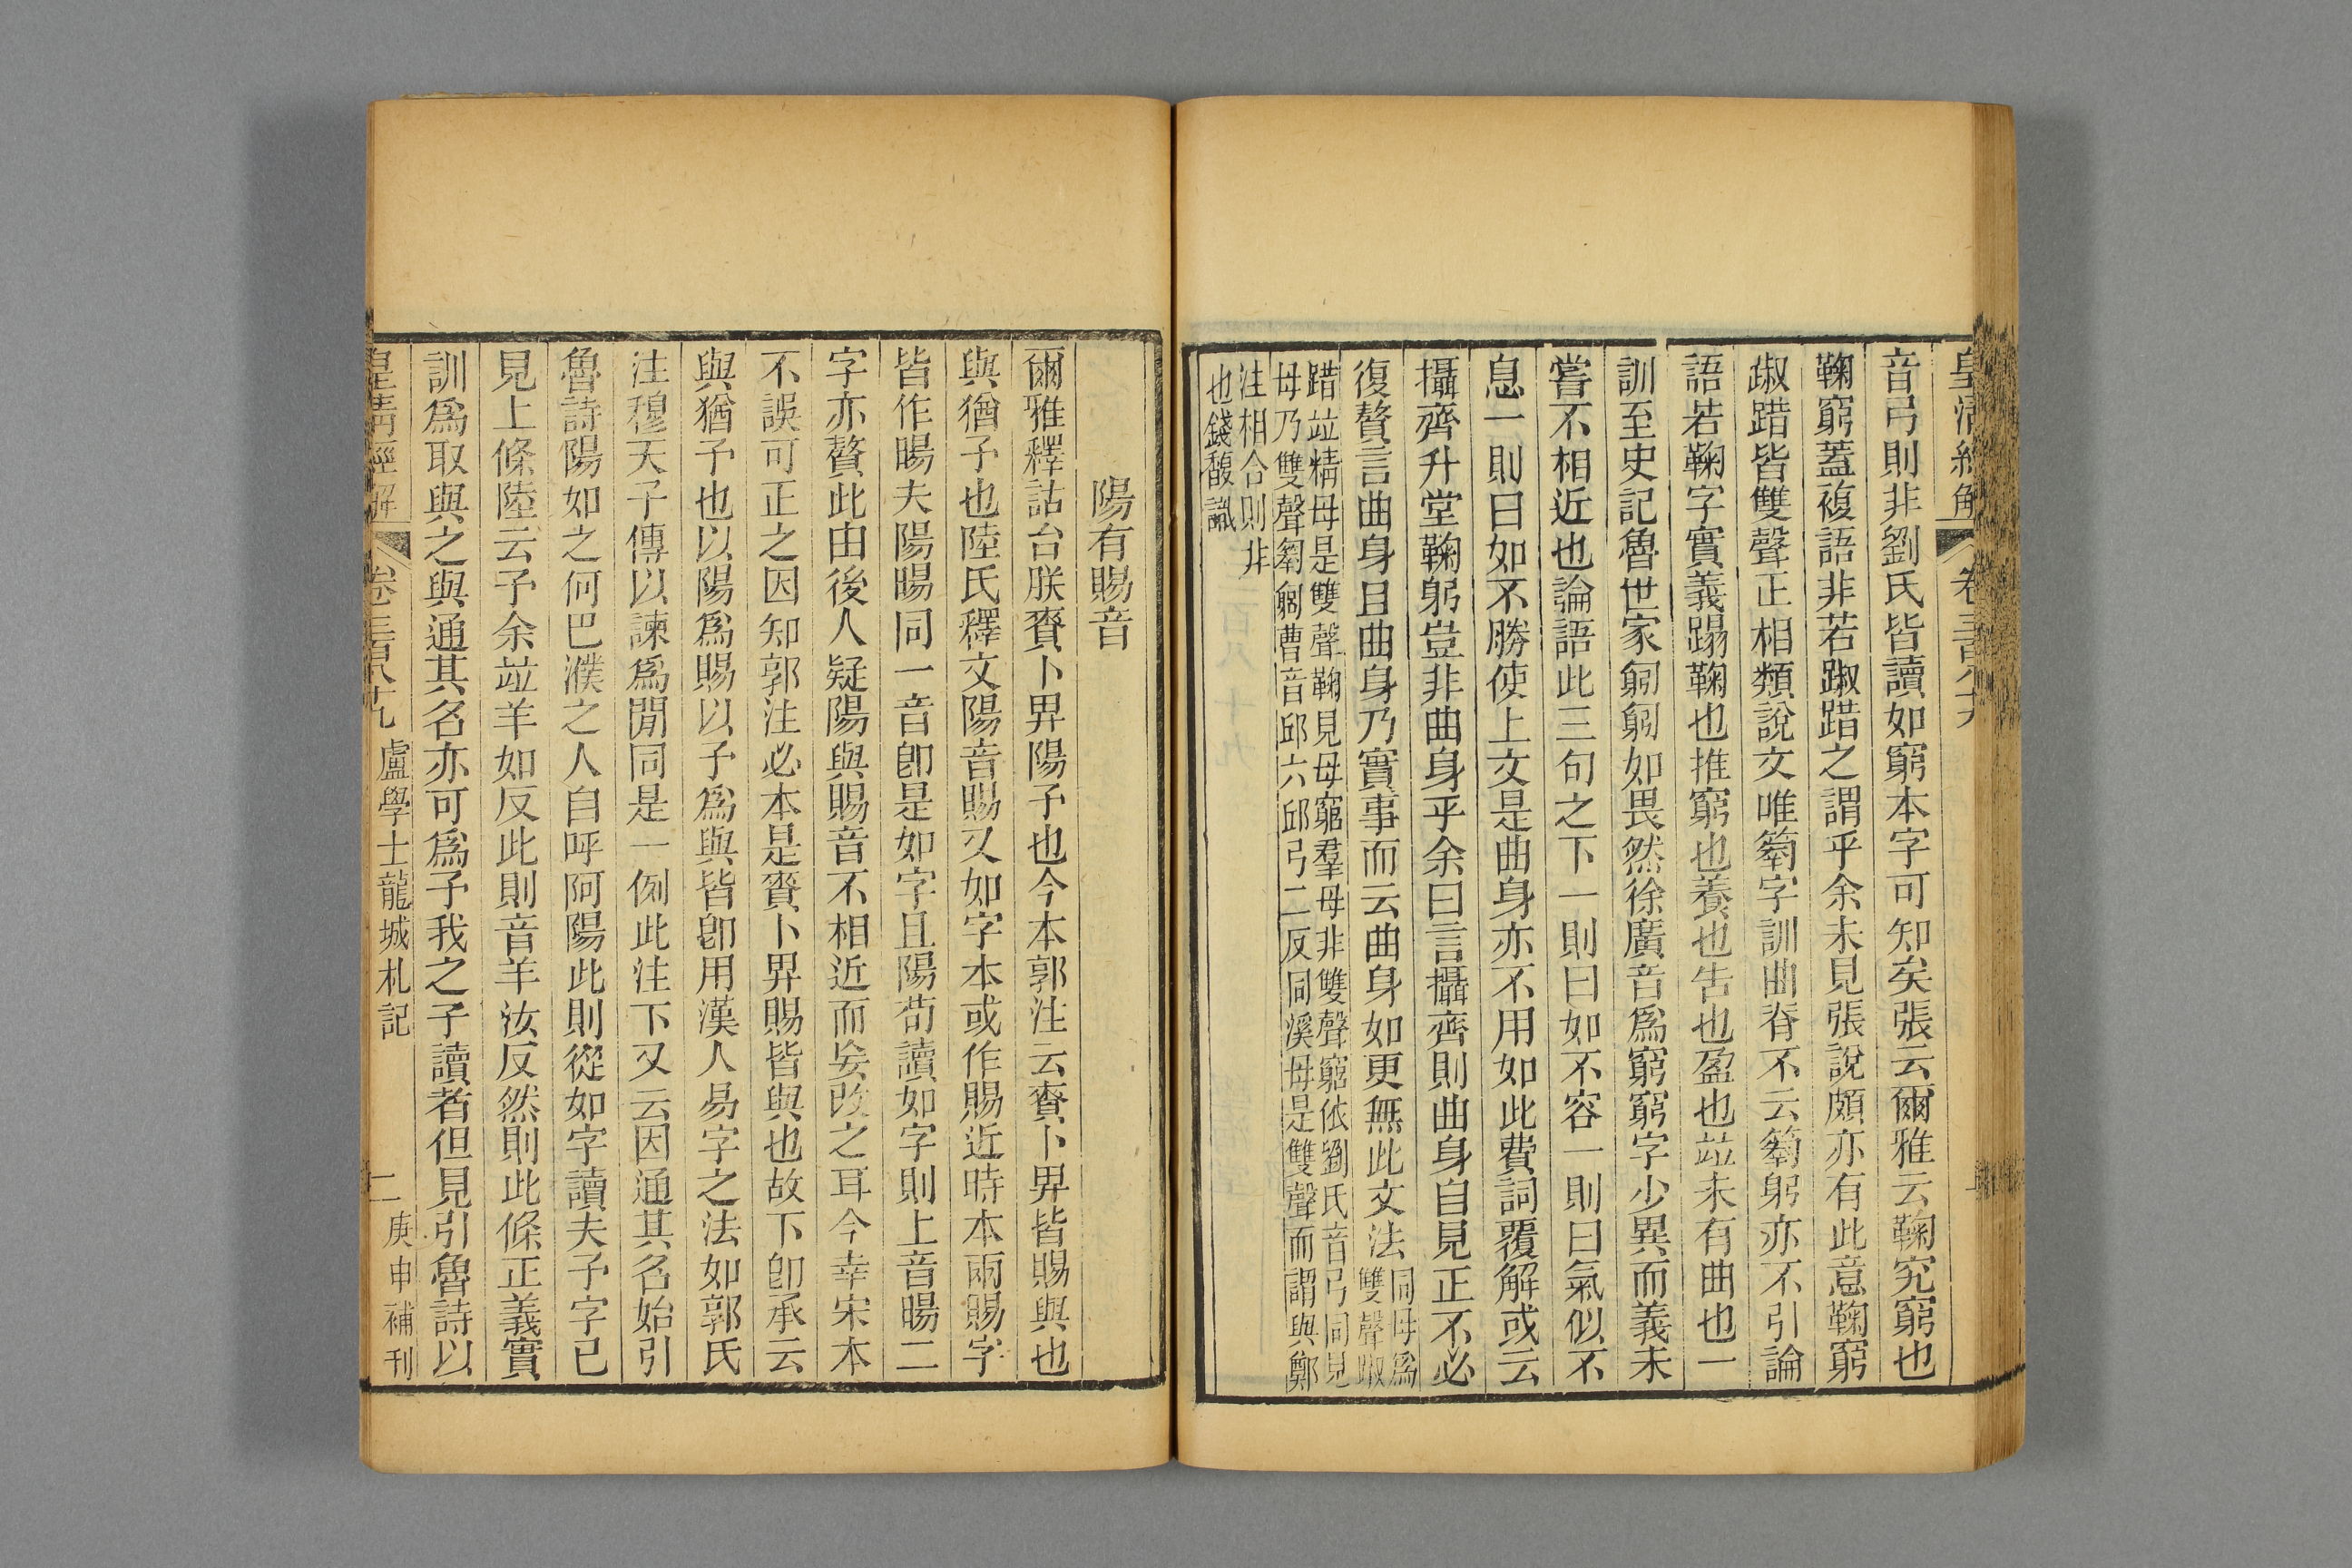 皇清經解 卷三百八十九
音弓則非劉氏皆讀如窮本字可知矣張云爾雅云鞠究窮也
鞠窮蓋複語非若踧踖之謂乎余未見張說頗亦有此意鞠窮
踧踖皆雙聲正相類說文唯匑字訓曲脊不云匑躬亦不引論
語若鞠字實義蹋鞠也推窮也養也告也盈也竝未有曲也一
訓至史記魯世家匔匔如畏然徐廣音為窮窮字少異而義未
嘗不相近也論語此三句之下一則曰如不容一則曰氣似不
息一則曰如不勝使上文是曲身亦不用如此費詞覆解或云
攝齊升堂鞠躬豈非曲身乎余曰言攝齊則曲身自見正不必
復贅言曲身且曲身乃實事而云曲身如更無此文法同母為
雙聲踧
踖竝精母是雙聲鞠見母窮羣母非雙聲窮依劉氏音弓同見
母乃雙聲匑匔曹音邱六邱弓二反同溪母是雙聲而謂與鄭
注相合則非
也錢馥識
陽有賜音
爾雅釋詁台朕賚卜畀陽予也今本郭注云賚卜畀皆賜與也
與猶予也陸氏釋文陽音賜又如字本或作賜近時本兩賜字
皆作暘夫陽暘同一音卽是如字且陽苟讀如字則上音暘二
字亦贅此由後人疑陽與賜音不相近而妄改之耳今幸宋本
不誤可正之因知郭注必本是賚卜畀賜皆與也故下卽承云
與猶予也以陽為賜以予為與皆卽用漢人易字之法如郭氏
注穆天子傳以諫為閒同是一例此注下又云因通其名始引
魯詩陽如之何巴濮之人自呼阿陽此則從如字讀夫予字已
見上條陸云予余竝羊如反此則音羊汝反然則此條正義實
訓為取與之與通其名亦可為予我之予讀者但見引魯詩以
皇清經解 卷三百八十九 盧學士龍城札記 二 庚申補刊